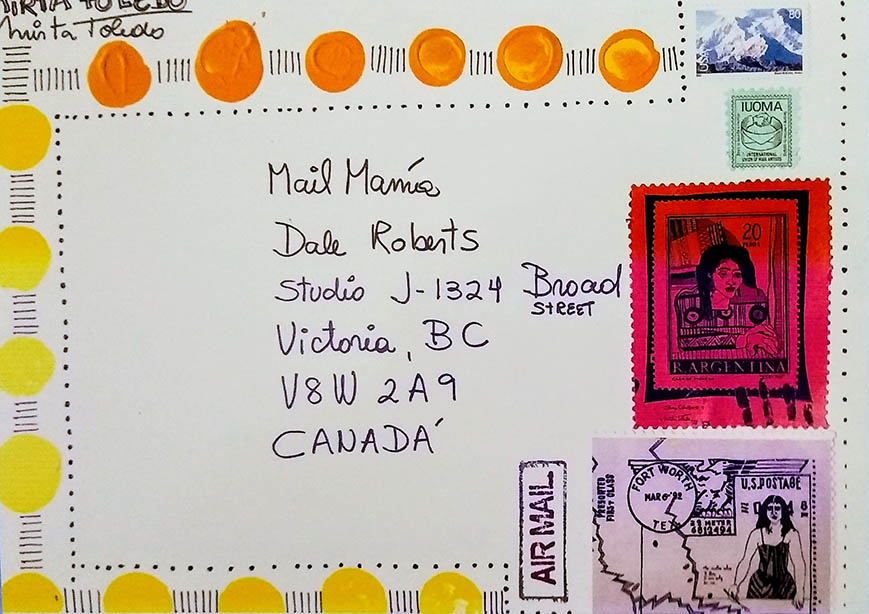 MIRTA TOLEDO
Mirta Toledo
80
USA
IUOMA
INTERNATIONAL
UNION OF MAIL ARTISTS
Mail Manía
Dale Roberts
Studio J-1324 Broad
STREET
Victoria, BC
V8W 2A9
CANADÁ
20
PESOS
R. ARGENTINA
AIR MAIL
PRESORTED
FIRST CLASS
FORT WORTH
MAR 6 '92
TEX
U.S. POSTAGE
28 METER
6812494